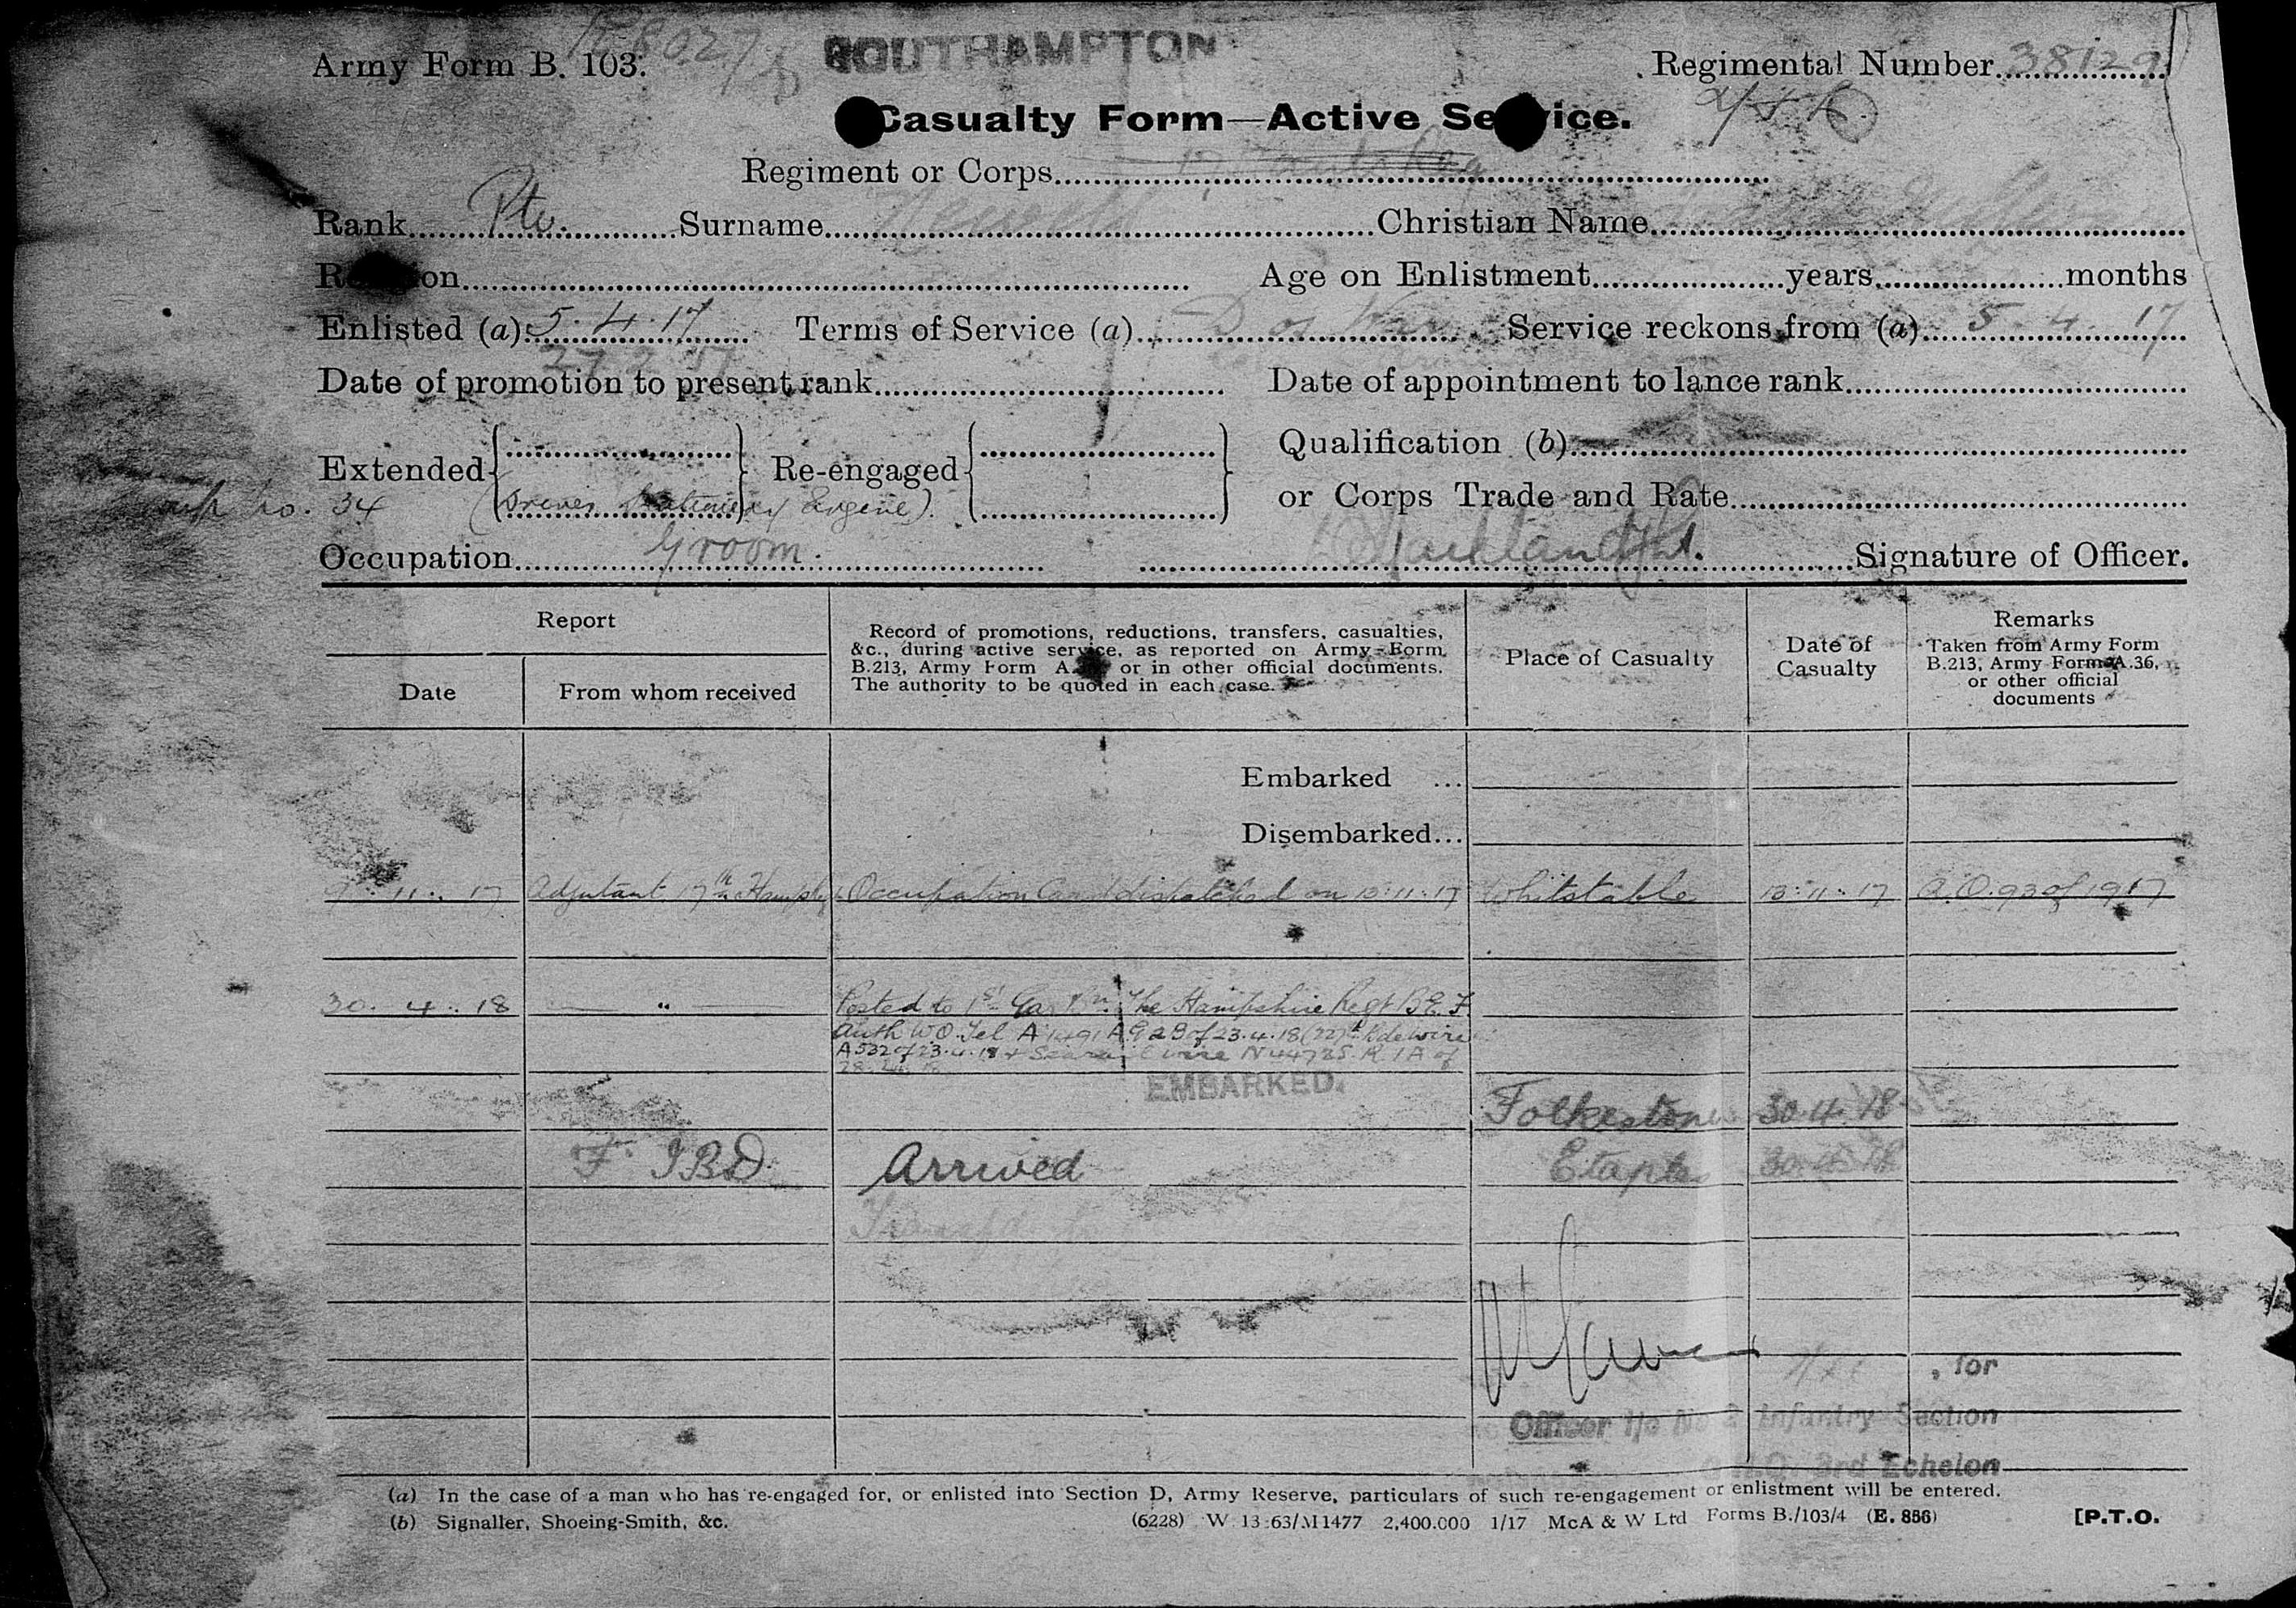 SOUTHAMPTON
Army Form B. 103.
Regimental Number 38129
Casualty Form—Active Se ice.
Regiment or Corps
Rank Pte. Surname Christian Name
R on Age on Enlistment years months
Enlisted (a) 5.4.17 Terms of Service (a) D of War Service reckons from (a) 5.4.17
27.2.17
Date of promotion to present rank Date of appointment to lance rank
Extended Re-engaged Qualification (b)
No. 34 (Driver Stationery Engine). or Corps Trade and Rate
Occupation Groom. Signature of Officer.
Report
Date
From whom received
Record of promotions, reductions, transfers, casualties, &c., during active service, as reported on Army Form B.213, Army Form A. or in other official documents. The authority to be quoted in each case.
Place of Casualty
Date of Casualty
Remarks
Taken from Army Form B.213, Army Form A.36, or other official documents
Embarked ...
Disembarked...
11.17 Adjutant 17th Hampshire Occupation Card dispatched on 13.11.17 Whitstable 13.11.17 A.O. 93 of 1917
30.4.18 " Posted to 1st Gar Bn. The Hampshire Regt B.E.F
Auth W.O. Tel A 1491 A.G.2B of 23.4.18 (227th Bde wire
A532 of 23.4.18 + wire N44785.R 1A of
28.4.18
EMBARKED. Folkestone 30.4.18
F. IBD Arrived Etaples 30.4.18
, for
Officer i/c No 2 Infantry Section
G.H.Q. 3rd Echelon
(a) In the case of a man who has re-engaged for, or enlisted into Section D, Army Reserve, particulars of such re-engagement or enlistment will be entered.
(b) Signaller, Shoeing-Smith, &c. (6228) W 13:63/M1477 2,400.000 1/17 McA & W Ltd Forms B./103/4 (E. 856) [P.T.O.